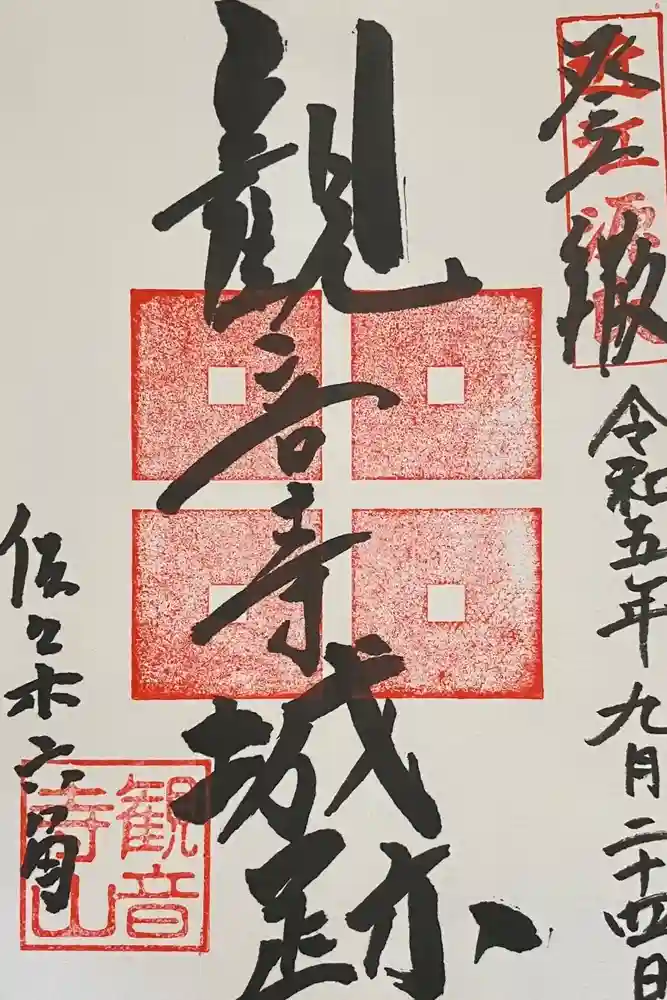 登城
令和五年九月二十四日
観音寺城跡
佐々木六角
観音
寺山